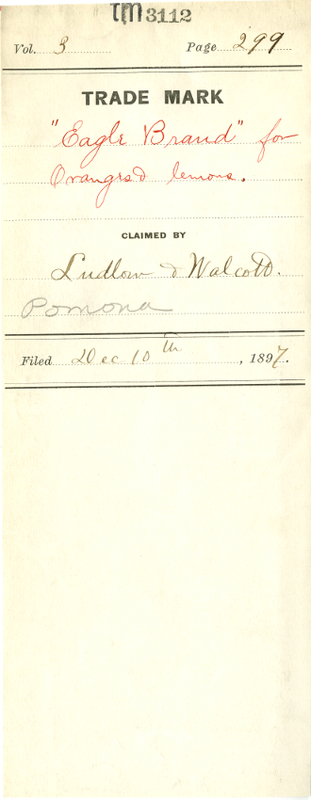 TM3112
Vol. 3 Page 299
TRADE MARK
"Eagle Brand" for
Oranges & lemons.
CLAIMED BY
Ludlow & Walcott.
Pomona
Filed Dec 10th, 1897.